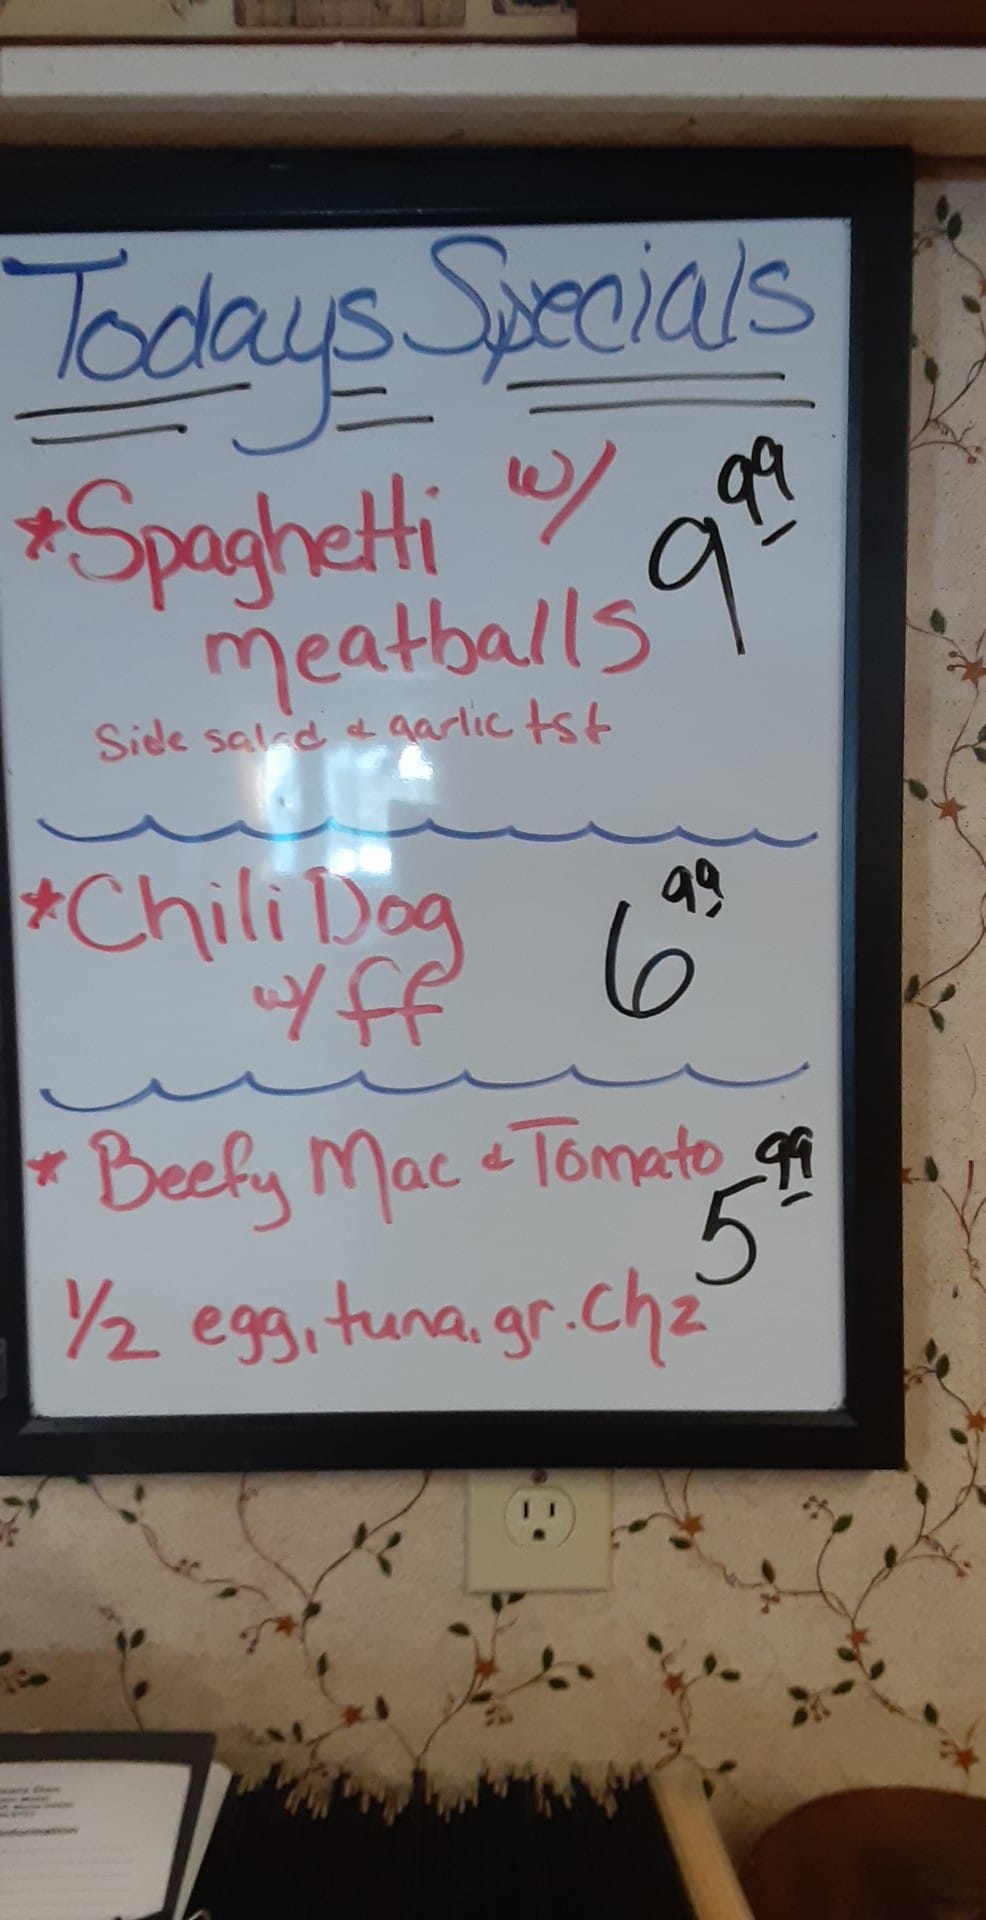 Todays Specials
*Spaghetti w/ 9.99
meatballs
Side salad & garlic tst
*Chili Dog 6.99
w/ ff
* Beefy Mac & Tomato 5.99
1/2 egg, tuna, gr. chz
information